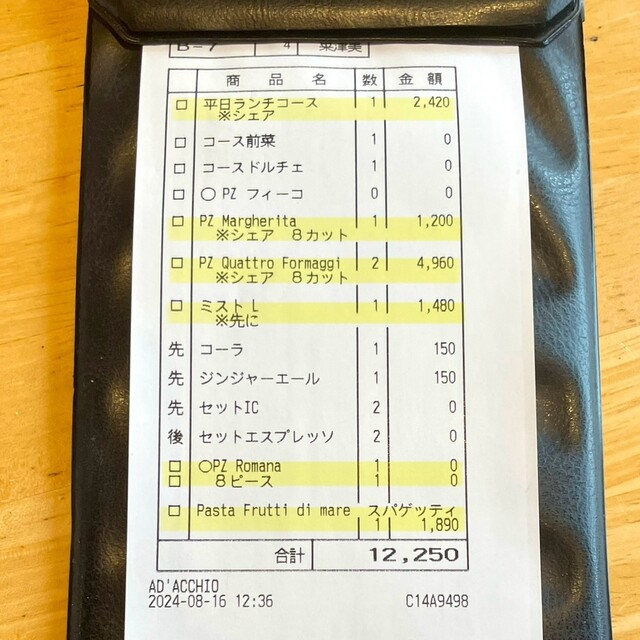 B-7 4
商品名 数 金額
□ 平日ランチコース 1 2,420
※シェア
□ コース前菜 1 0
□ コースドルチェ 1 0
□ ○ PZ フィーコ 0 0
□ PZ Margherita 1 1,200
※シェア 8カット
□ PZ Quattro Formaggi 2 4,960
※シェア 8カット
□ ミスト L 1 1,480
※先に
先 コーラ 1 150
先 ジンジャーエール 1 150
先 セットIC 2 0
後 セットエスプレッソ 2 0
□ ○PZ Romana 1 0
□ 8ピース 1 0
□ Pasta Frutti di mare スパゲッティ
1 1,890
合計 12,250
AD'ACCHIO
2024-08-16 12:36 C14A9498